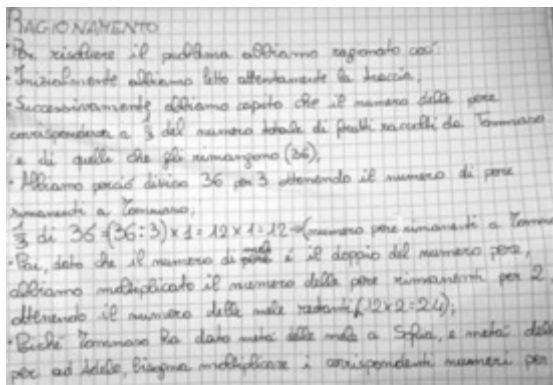 RAGIONAMENTO
• Per risolvere il problema abbiamo ragionato così:
• Inizialmente abbiamo letto attentamente la traccia,
• Successivamente abbiamo capito che il numero delle pere
corrispondeva a 1/3 del numero totale di frutti raccolti da Tommaso
e di quelli che gli rimangono (36),
• Abbiamo perciò diviso 36 per 3 ottenendo il numero di pere
rimanenti a Tommaso,
1/3 di 36 = (36:3) x 1 = 12 x 1 = 12 → (numero pere rimanenti a Tomm
• Poi, dato che il numero di mele è il doppio del numero pere,
abbiamo moltiplicato il numero delle pere rimanenti per 2,
ottenendo il numero delle mele restanti (12x2=24);
• Poiché Tommaso ha dato metà delle mele a Sofia, e metà delle
per ad Adele, bisogna moltiplicare i corrispondenti numeri per